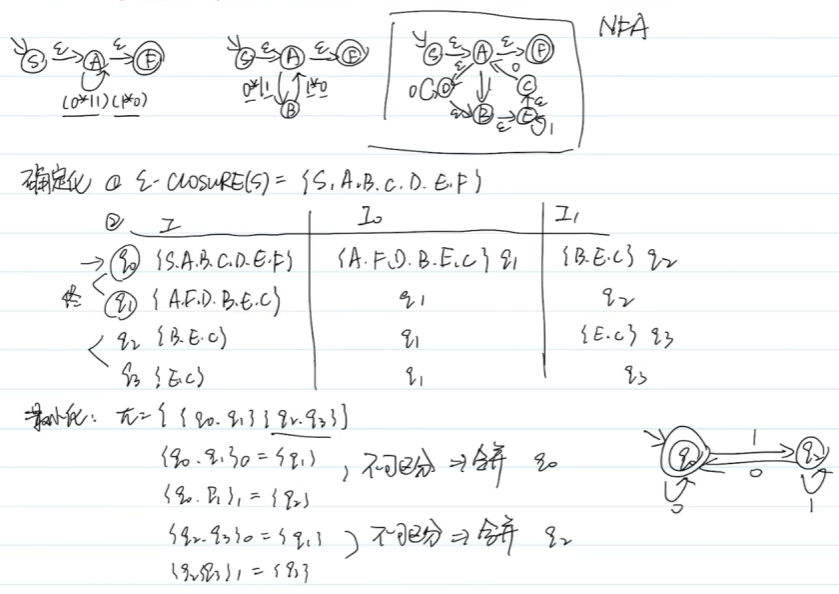 NFA
S ε A ε F
(0*|1)(1*0)
S ε A ε F
0*|1 1*0
B
S ε A ε F
0 D ε 1 0 C
ε B ε E ε 1
确定化 ① ε-CLOSURE(S) = {S.A.B.C.D.E.F}
② I I₀ I₁
→ q₀ {S.A.B.C.D.E.F} {A.F.D.B.E.C} q₁ {B.E.C} q₂
终 q₁ {A.F.D.B.E.C} q₁ q₂
q₂ {B.E.C} q₁ {E.C} q₃
q₃ {E.C} q₁ q₃
最小化: π={{q₀.q₁}{q₂.q₃}}
{q₀.q₁}₀ = {q₁}
, 不可区分 ⇒ 合并 q₀
{q₀.q₁}₁ = {q₂}
{q₂.q₃}₀ = {q₁}
) 不可区分 ⇒ 合并 q₂
{q₂q₃}₁ = {q₃}
q₀ 1 q₂
0 0 1